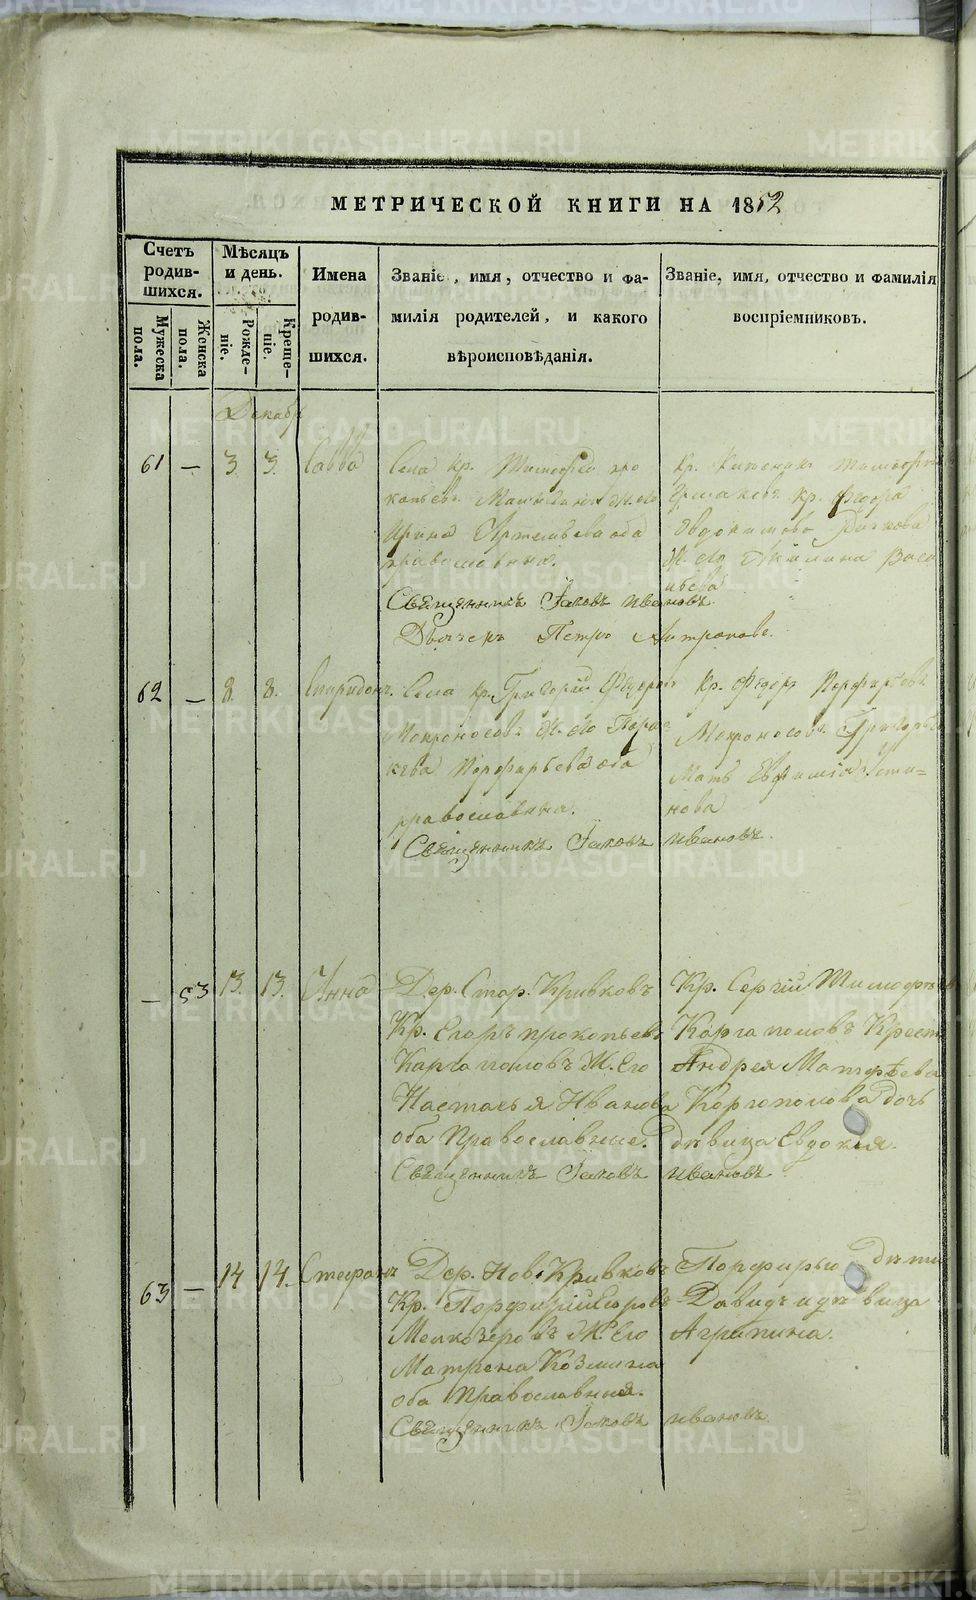 МЕТРИЧЕСКОЙ КНИГИ НА 1852
Счетъ родившихся.
Мѣсяцъ и день.
Имена родившихся.
Званіе, имя, отчество и фамилія родителей, и какого вѣроисповѣданія.
Званіе, имя, отчество и фамилія воспріемниковъ.
Мужеска пола.
Женска пола.
Рожденіе.
Крещеніе.
Декабр
61 — 3 3. Савва
Села Кр. Тимофей Про
копьевъ Ж. его
Ирина Артемьева оба
православныя.
Кр. Тимофе
Кр. Федора
Евдокимова
Ж. его Акилина Васи
льева
Священникъ Іаковъ Ивановъ.
Дьячекъ Петръ
62 — 8. 8. Спиридонъ
Села Кр. Григорій Федоровъ
Мокроносовъ Ж. его Пара
скева Порфирьева оба
православныя.
Кр. Федоръ Порфирьевъ
Мокроносовъ Григорья
Мать Евфимія Усти=
нова
Священникъ Іаковъ Ивановъ.
— 53 13. 13. Анна
Дер. Стар. Кривковъ
Кр. Егоръ Прокопьевъ
Каргаполовъ Ж. Его
Настасья Иванова
оба Православные.
Кр. Сергій Тимофѣевъ
Каргаполовъ Крест
Андрея Матфѣева
Коргополова дочь
дѣвица Евдокія.
Священникъ Іаковъ Ивановъ
63 — 14 14. Стефанъ
Дер. Нов. Кривковъ
Кр. Порфирій Егоровъ
Мелкозеровъ Ж. Его
Матрена Козмина
оба Православныя.
Порфирью дѣти
Давидъ и дѣвица
Агрипина.
Священникъ Іаковъ Ивановъ
METRIKI.GASO-URAL.RU